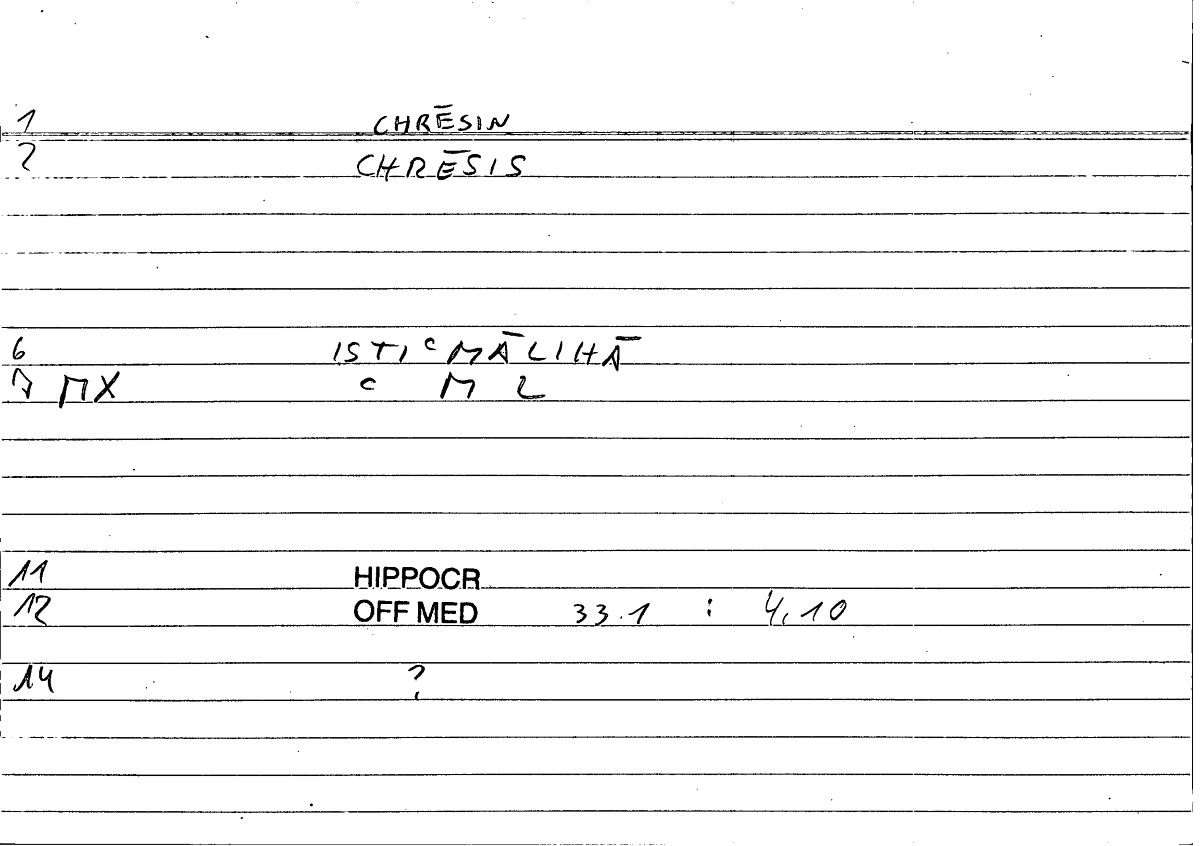 1 CHRĒSIN
2 CHRĒSIS
6 ISTIᶜMĀLIHĀ
7 ΠX ᶜ M L
11 HIPPOCR
12 OFF MED 33.1 : 4,10
14 ?